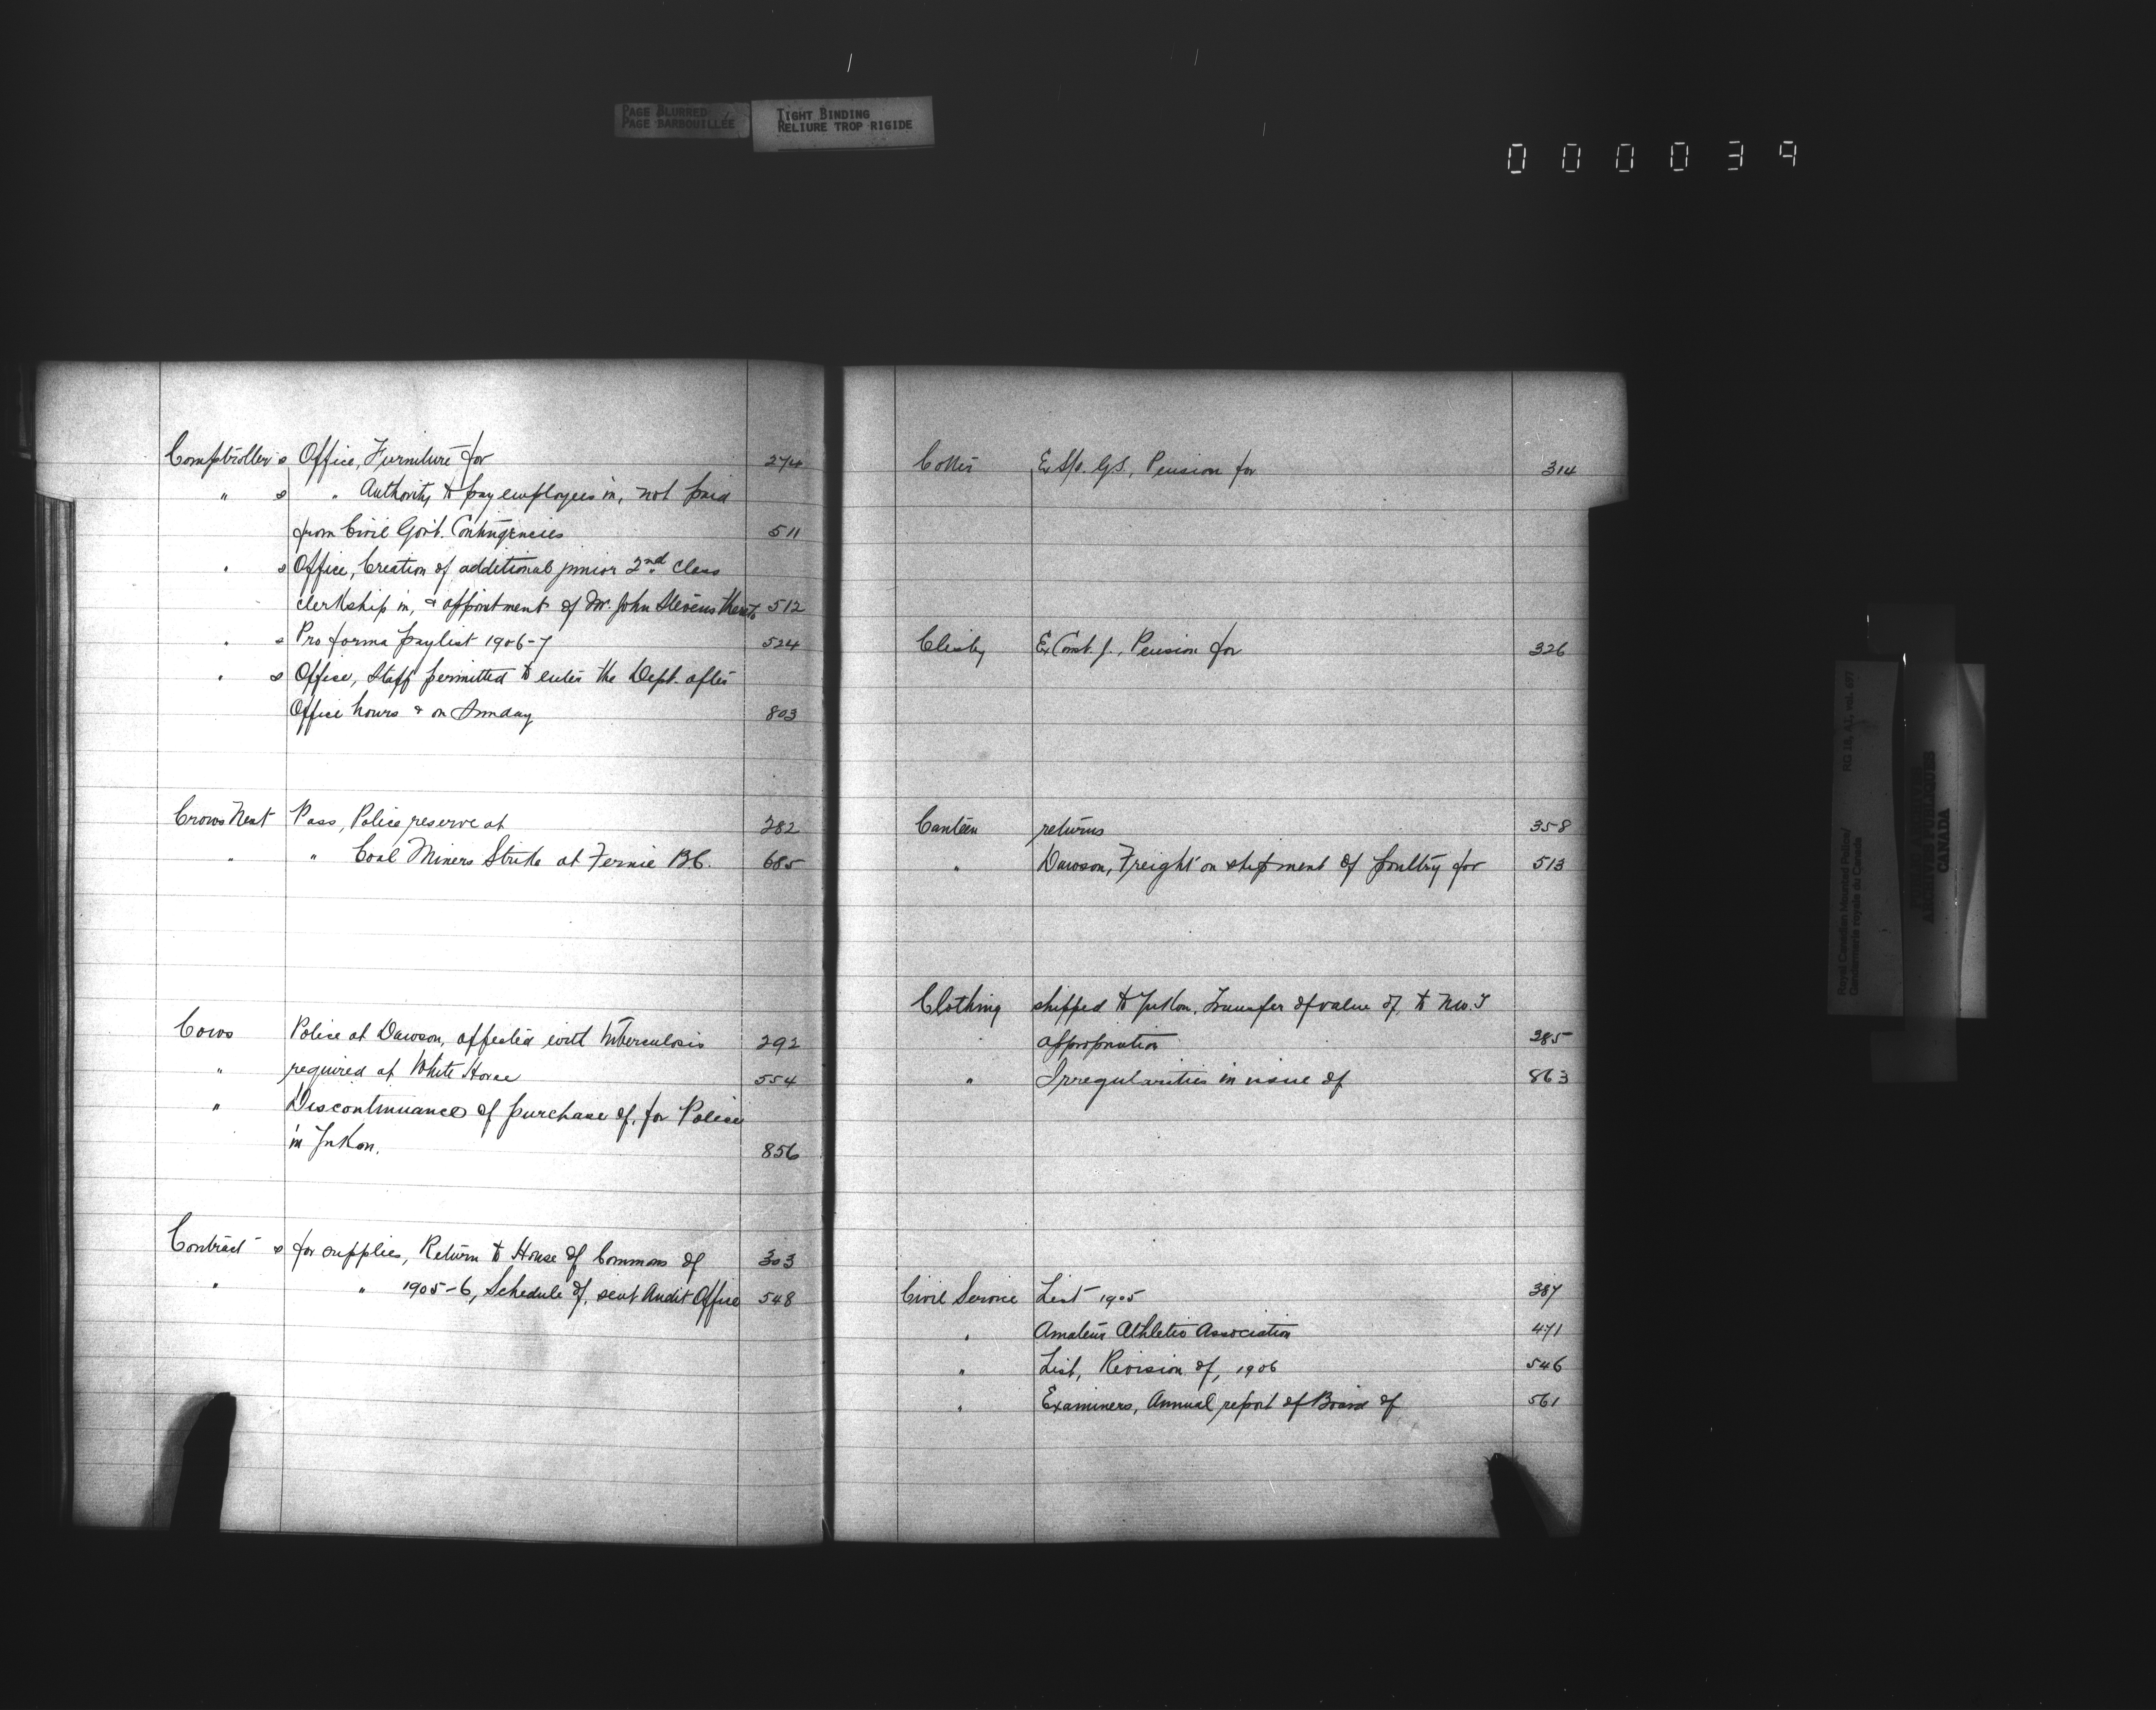 PAGE BLURRED
PAGE BARBOUILLÉE
TIGHT BINDING
RELIURE TROP RIGIDE
000039
Comptroller s Office, Furniture for 274
" s " Authority to pay employees in, not paid
from Civil Govt. Contingencies 511
" s Office, Creation of additional junior 2nd Class
clerkship in, & appointment of Mr. John Stevens thereto 512
" s Pro forma paylist 1906-7 524
" s Office, Staff permitted to enter the Dept. after
Office hours & on Sunday 803
Crows Nest Pass, Police reserve at 282
" " Coal Miners Strike at Fernie B.C. 685
Cows Police at Dawson, affected with tuberculosis 292
" required at White Horse 554
" Discontinuance of purchase of, for Police
in Yukon. 856
Contract s for supplies, Return to House of Commons of 303
" " 1905-6, Schedule of, sent Audit Office 548
Cotter Ex S/S. G.S., Pension for 314
Clisby Ex Const. J., Pension for 326
Canteen returns 358
" Dawson, Freight on shipment of poultry for 513
Clothing shipped to Yukon, Transfer of value of, to N.W.T
appropriation 385
" Irregularities in issue of 863
Civil Service List 1905 387
" Amateur Athletic Association 471
" List, Revision of, 1906 546
" Examiners, Annual report of Board of 561
Royal Canadian Mounted Police/
Gendarmerie royale du Canada
RG 18, A1, vol. 697
PUBLIC ARCHIVES
ARCHIVES PUBLIQUES
CANADA